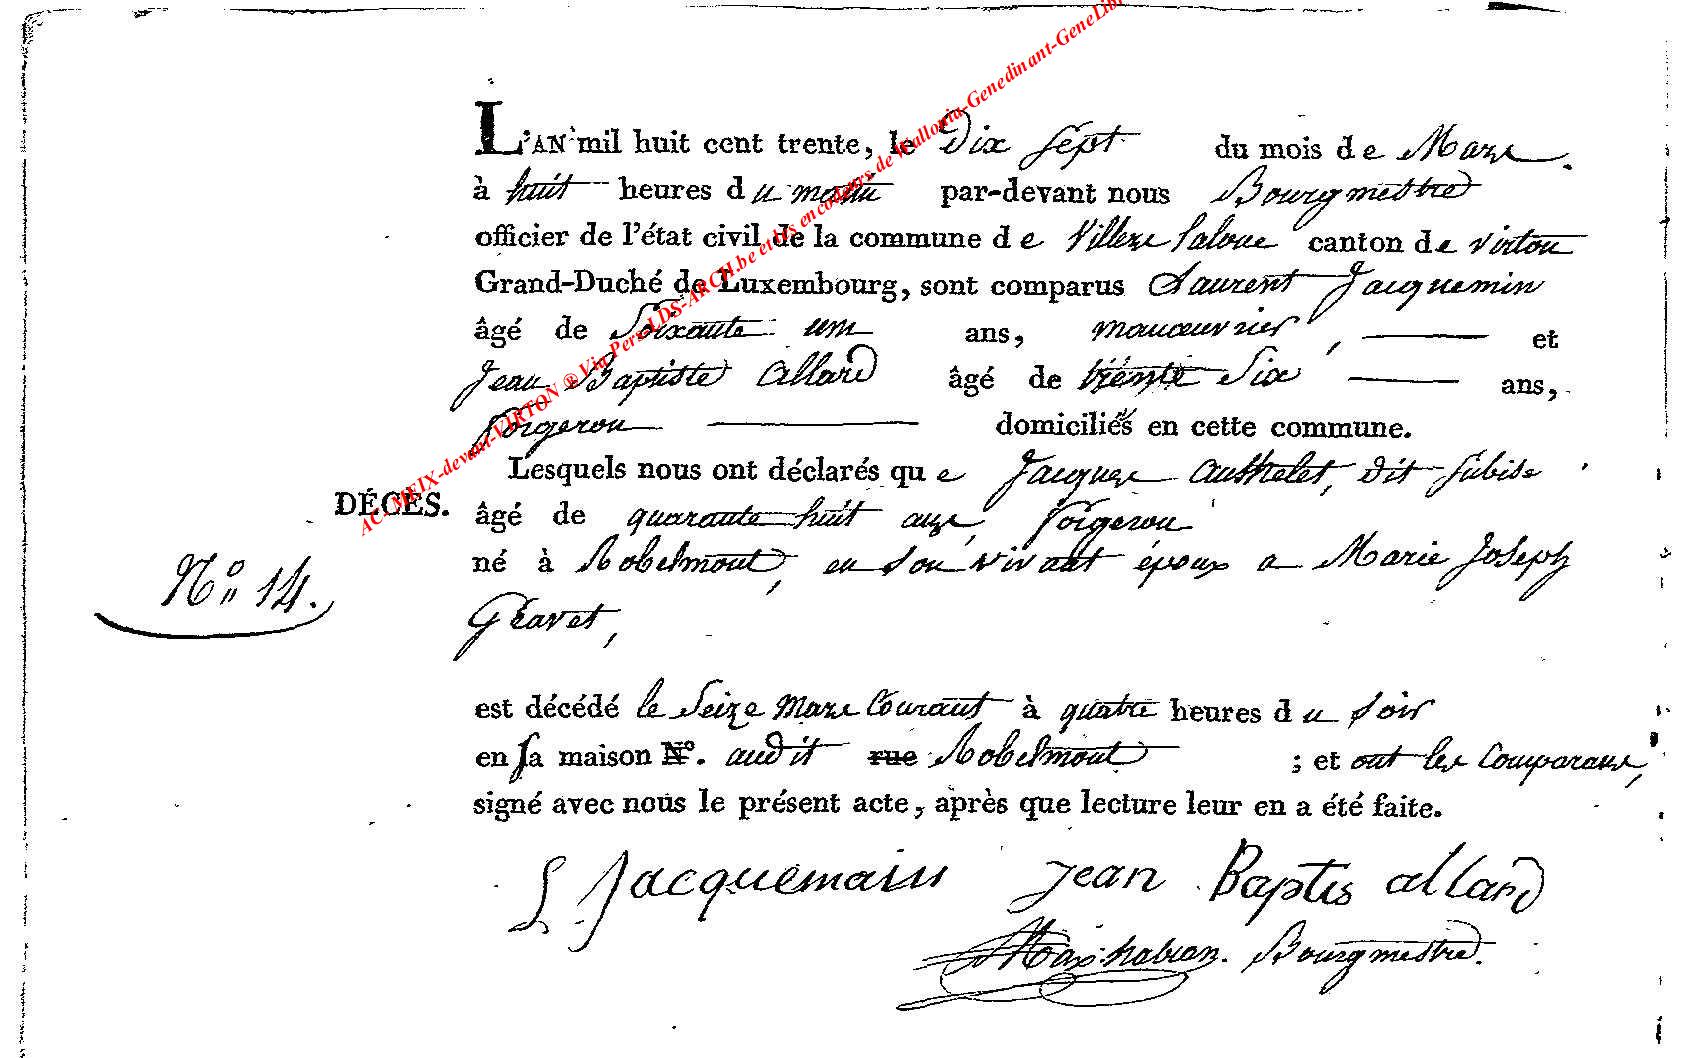 L'AN mil huit cent trente, le Dix Sept du mois de Mars.
à huit heures du matin par-devant nous Bourgmestre
officier de l'état civil de la commune de Villers laloue canton de virton
Grand-Duché de Luxembourg, sont comparus Laurent Jacquemin
âgé de Soixante un ans, manœuvrier, et
Jean Baptiste Allard âgé de trente Six ans,
forgeron domiciliés en cette commune.
Lesquels nous ont déclarés que Jacques Authelet, dit Subise
DÉCÈS. âgé de quarante huit ans, forgeron
né à Robelmont, en son vivant époux a Marie Joseph
N° 14.
Gravet,
est décédé le Seize Mars Courant à quatre heures du soir
en sa maison N°. audit rue Robelmont ; et ont les Comparans,
signé avec nous le présent acte, après que lecture leur en a été faite.
L Jacquemain Jean Baptis allard
Bourgmestre.
AC- MEIX-devant-VIRTON ® Via Pers-LDS-ARCH.be et les encodeurs de Wallonia-Genedinant-GeneLibr